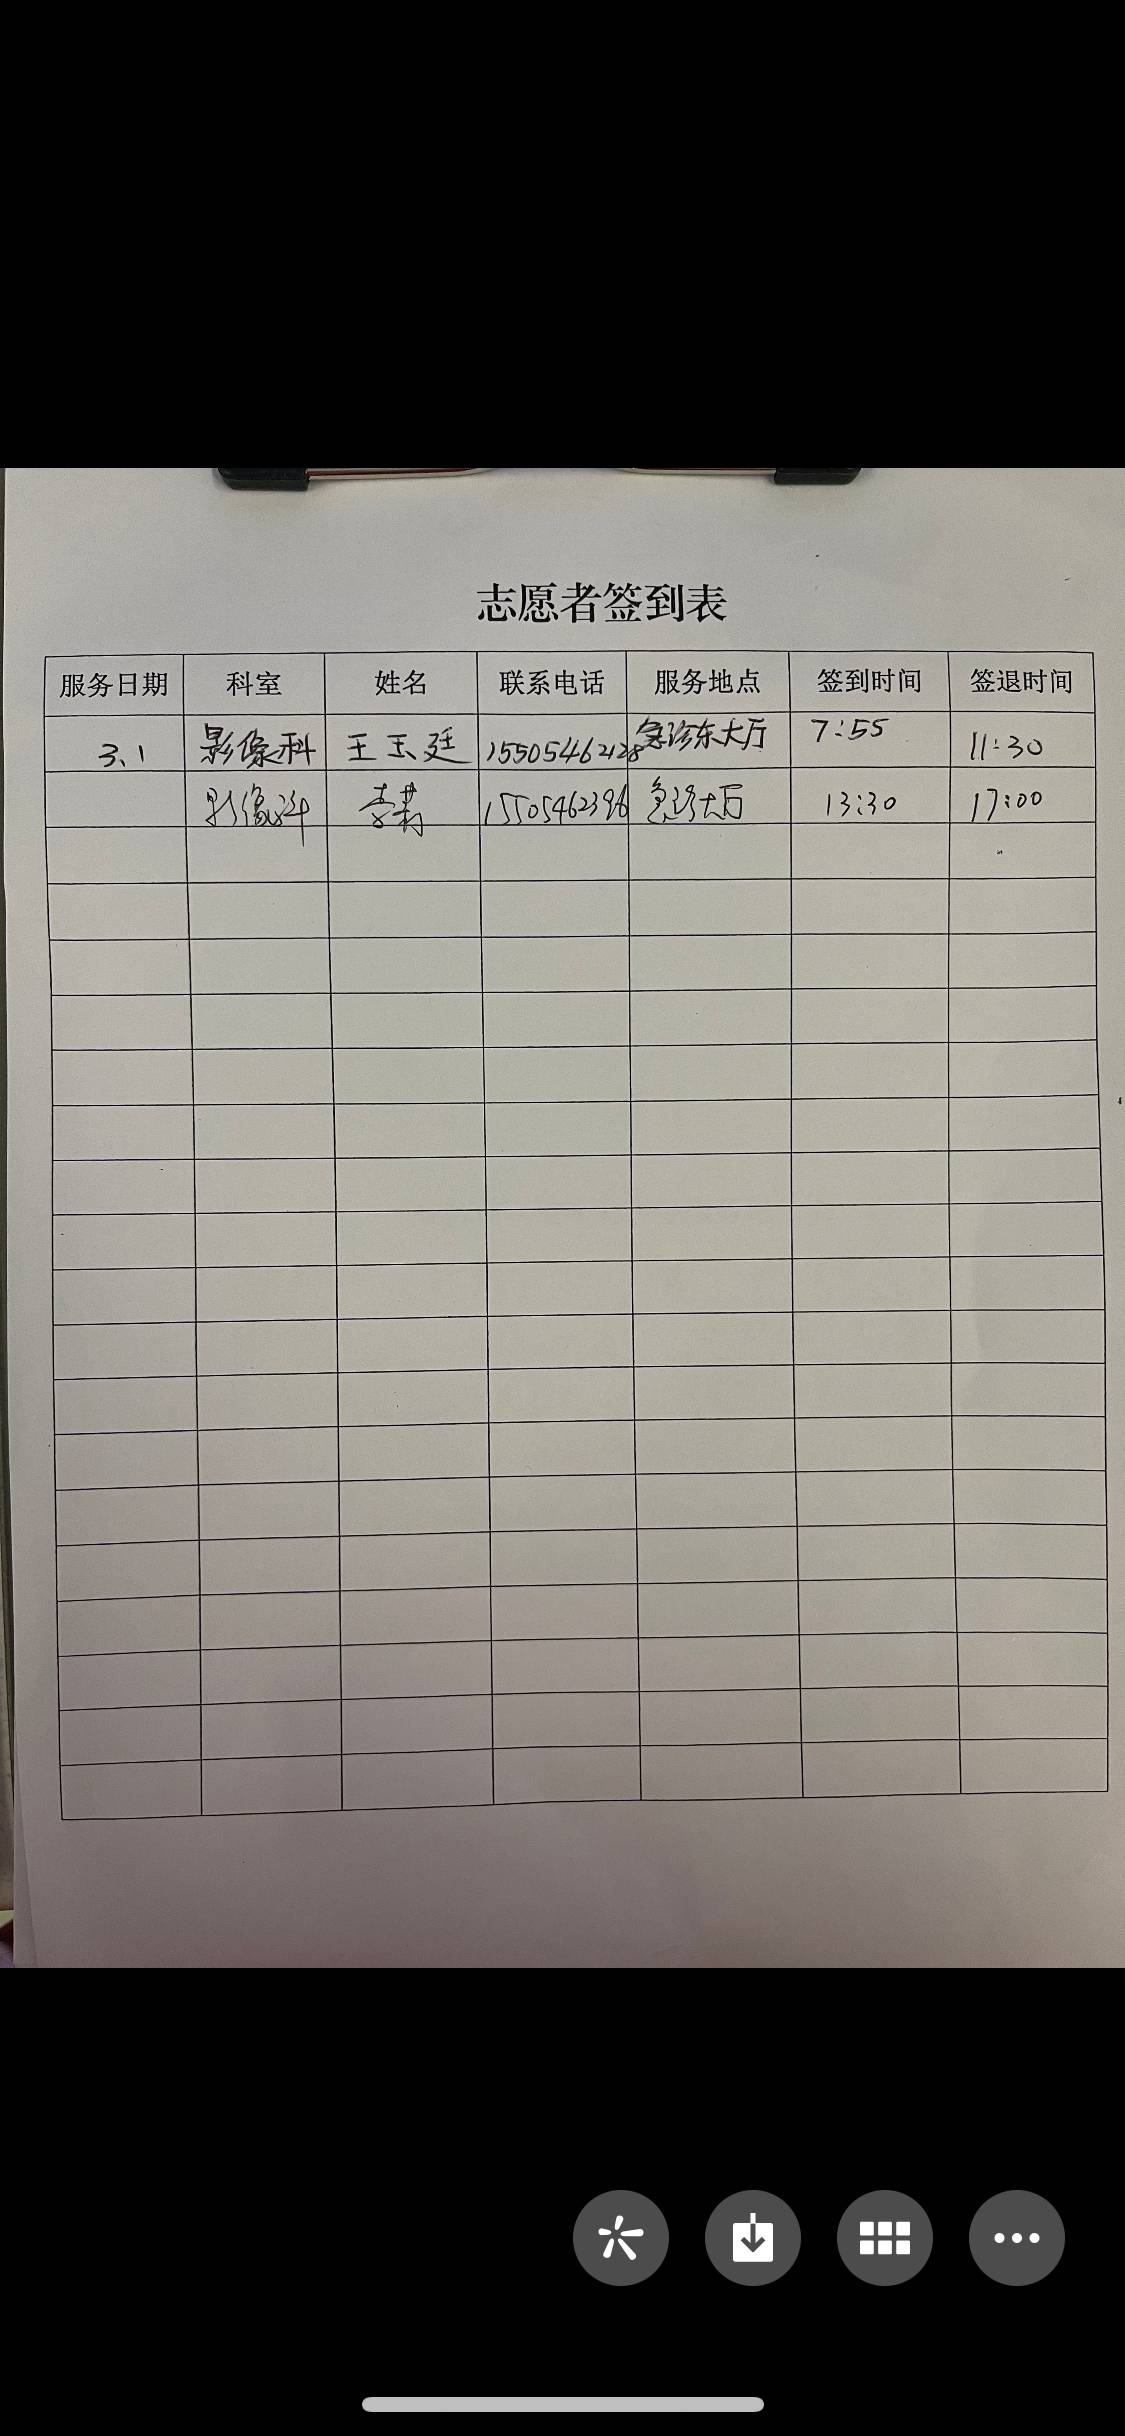 志愿者签到表
服务日期 科室 姓名 联系电话 服务地点 签到时间 签退时间
3、1 影像科 王玉廷 15505462128 急诊东大厅 7:55 11:30
影像科 李莉 15505462396 急诊大厅 13:30 17:00